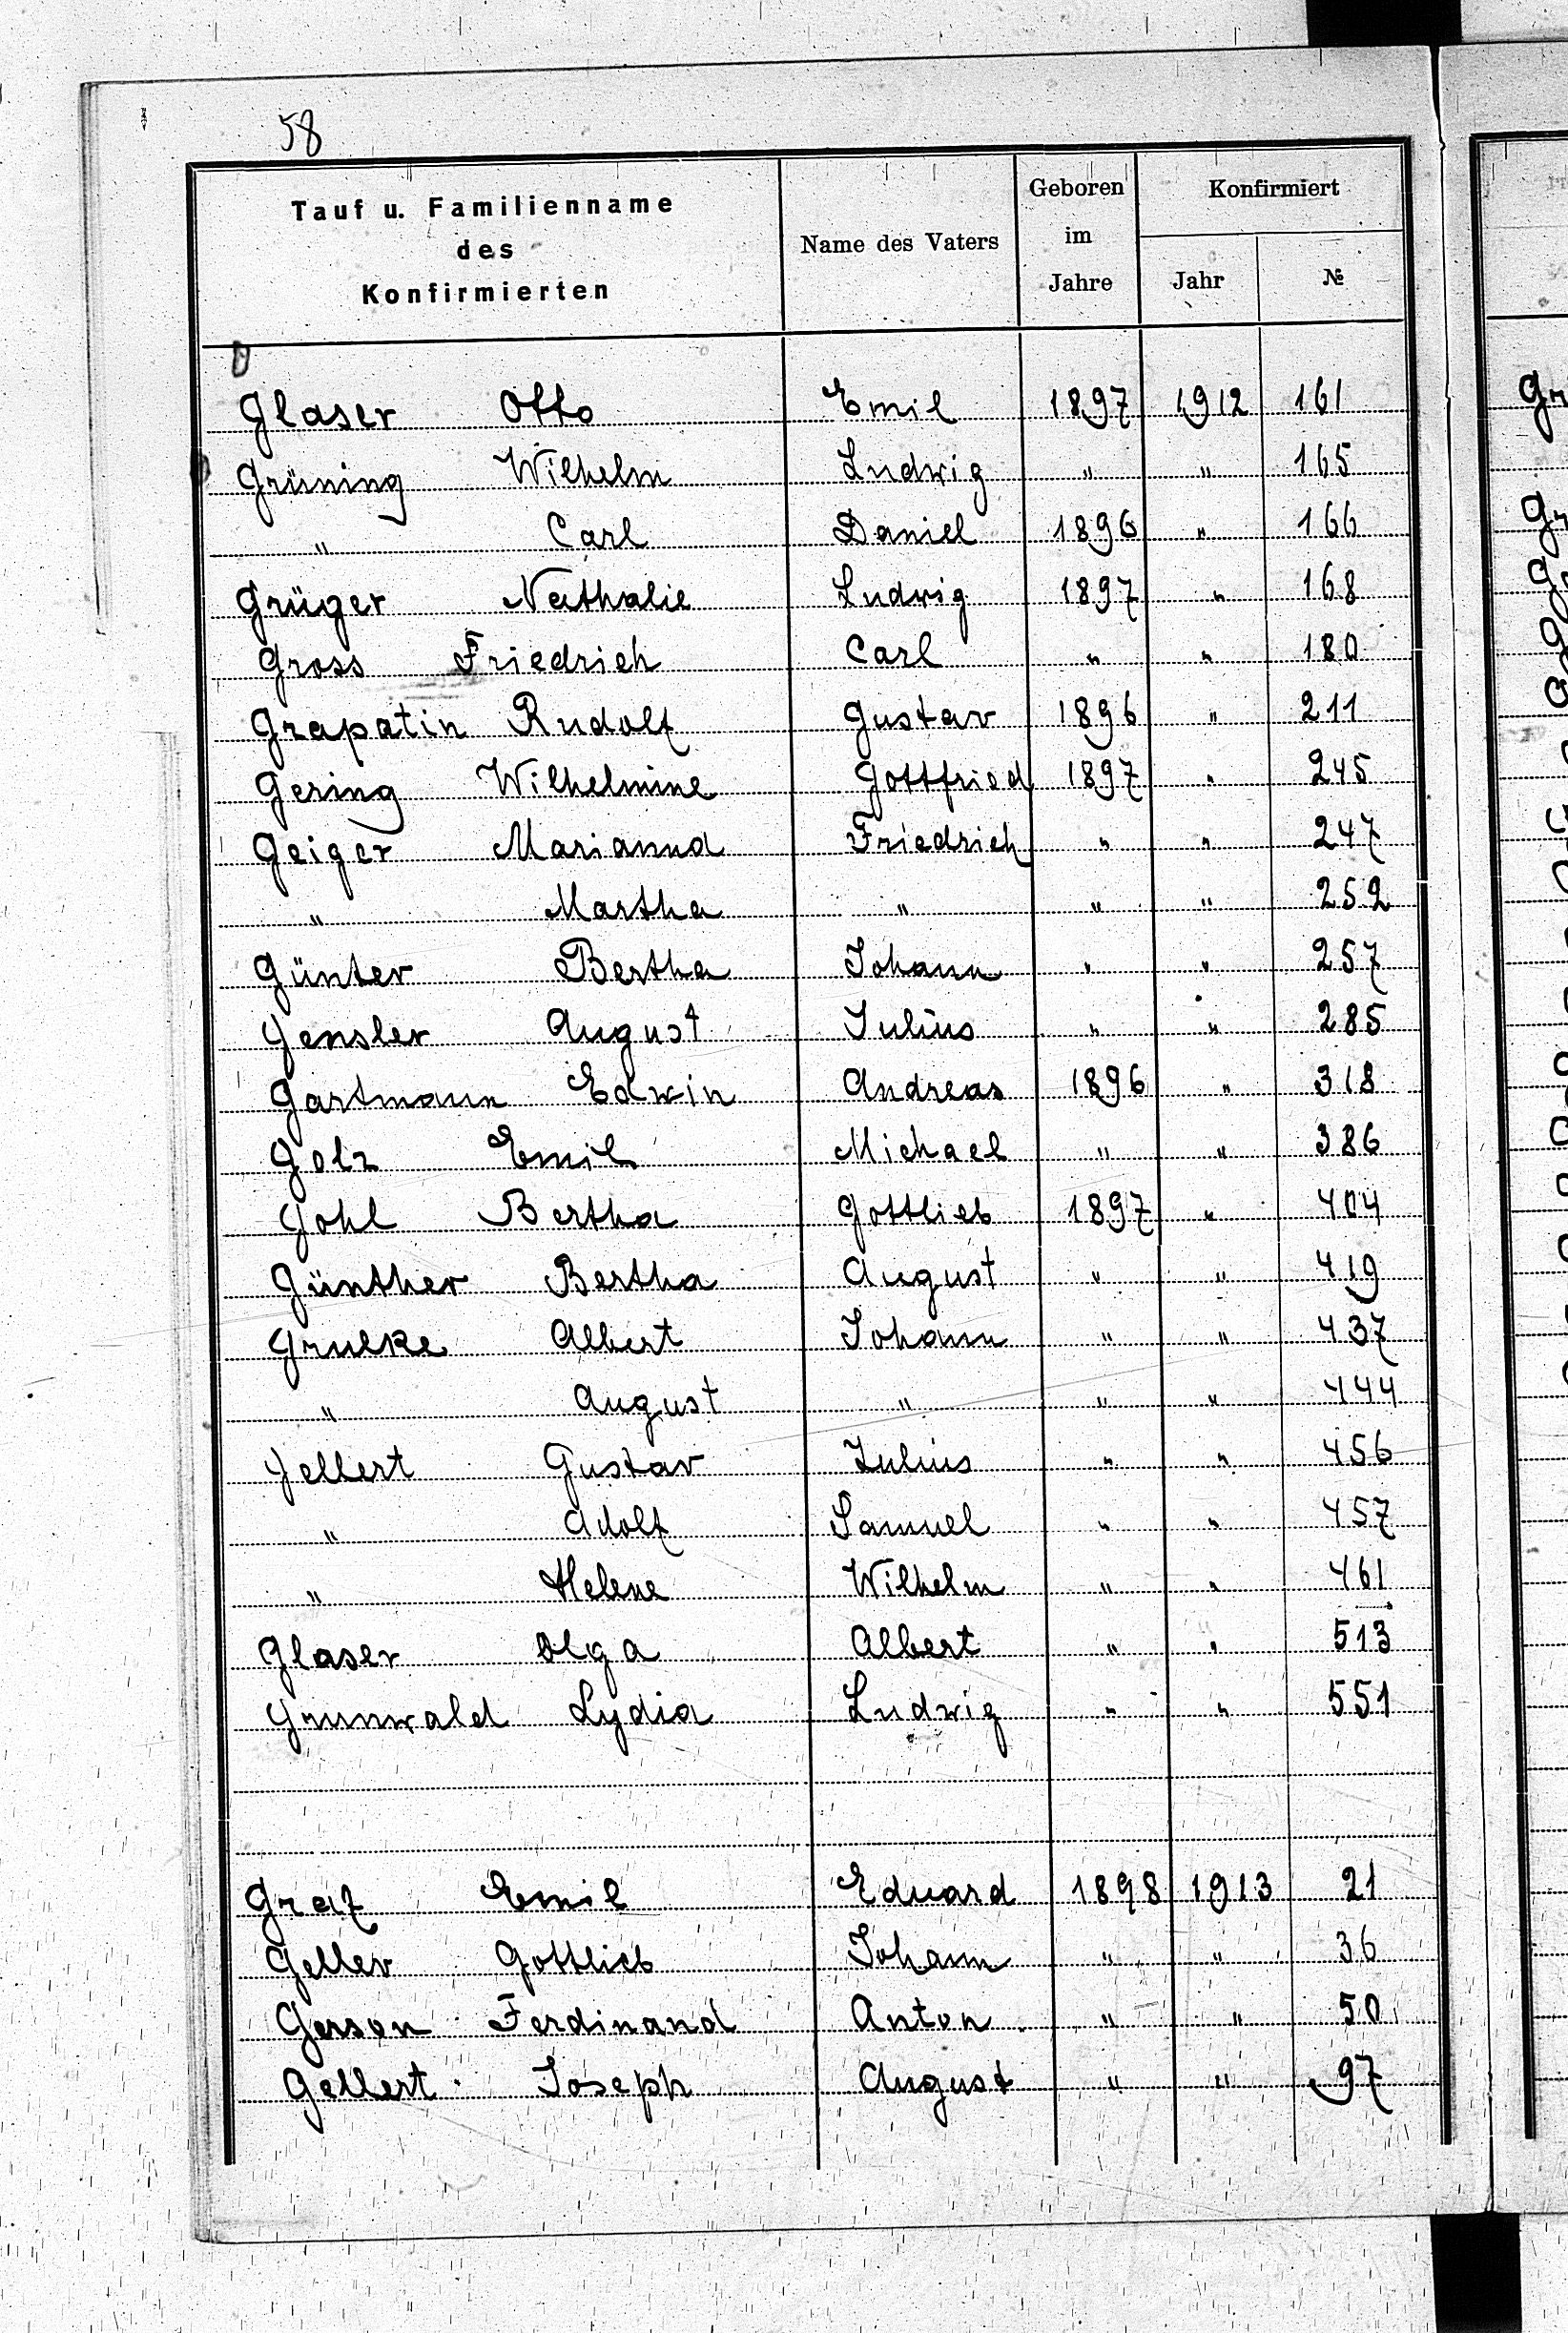 58
Tauf u. Familienname des Konfirmierten | Name des Vaters | Geboren im Jahre | Konfirmiert Jahr | №
Glaser Otto Emil 1897 1912 161
Grüning Wilhelm Ludwig " " 165
" Carl Daniel 1896 " 166
Grüger Nathalie Ludwig 1897 " 168
Gross Friedrich Carl " " 180
Grapatin Rudolf Gustav 1896 " 211
Gering Wilhelmine Gottfried 1897 " 245
Geiger Marianna Friedrich " " 247
" Martha " " " 252
Günter Bertha Johann " " 257
Gensler August Julius " " 285
Gartmann Edwin Andreas 1896 " 318
Golz Emil Michael " " 386
Gohl Bertha Gottlieb 1897 " 404
Günther Bertha August " " 419
Grulke Albert Johann " " 437
" August " " " 444
Gellert Gustav Julius " " 456
" Adolf Samuel " " 457
" Helene Wilhelm " " 461
Glaser Olga Albert " " 513
Grunwald Lydia Ludwig " " 551
Graf Emil Eduard 1898 1913 21
Geller Gottlieb Johann " " 36
Gerson Ferdinand Anton " " 50
Gellert Joseph August " " 97